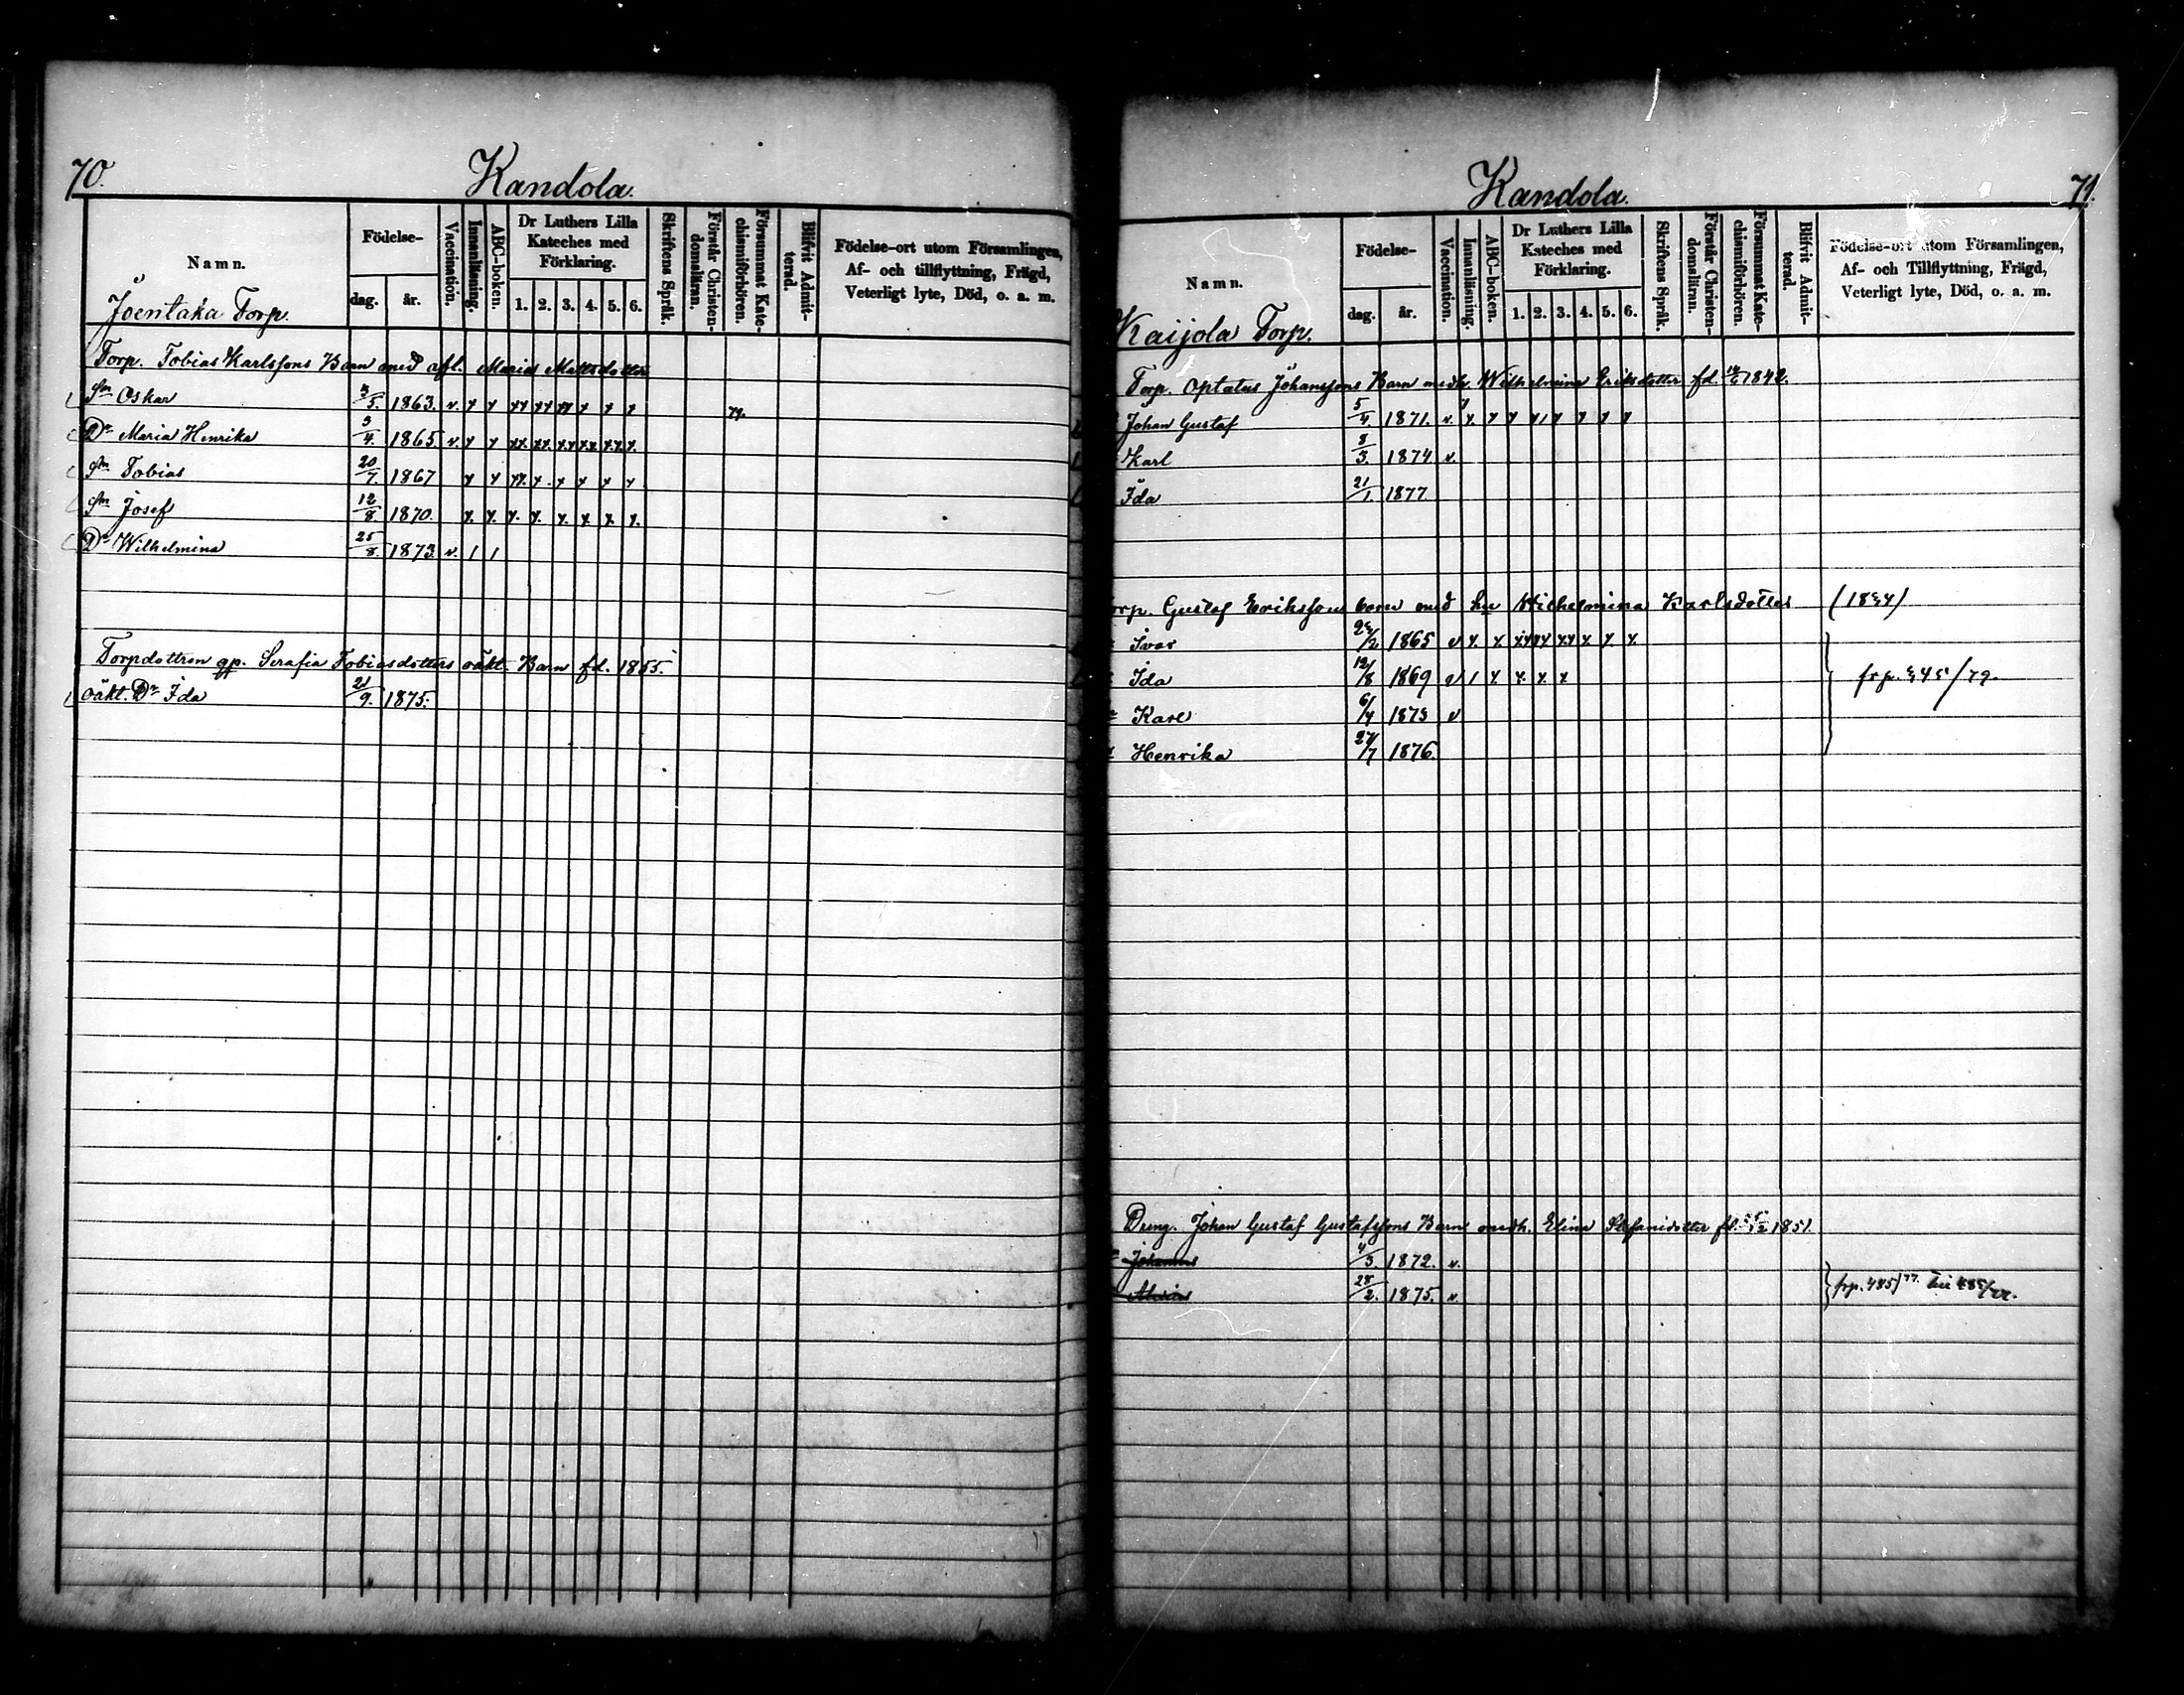 70.
Kandola.
Namn.
Födelse-
dag. år.
Vaccination.
Innanläsning.
ABC-boken.
Dr Luthers Lilla Kateches med Förklaring.
1. 2. 3. 4. 5. 6.
Skriftens Språk.
Förstår Christen-domsläran.
Försummat Kate-chismiförhören.
Blifvit Admit-terad.
Födelse-ort utom Församlingen,
Af- och tillflyttning, Frägd,
Veterligt lyte, Död, o. a. m.
Joentaka Torp.
Torp. Tobias Karlssons Barn med afl. Maria Mattsdotter
Sn Oskar 3/5. 1863. v. x x xx xx xx x x x 79.
Dr Maria Henrika 3/4. 1865 v. x x xx. xx. xx xx xx x.
Sn Tobias 20/7. 1867 x x xx. x. x x x x
Sn Josef 12/8 1870. x. x. x. x. x. x. x. x.
Dr Wilhelmina 25/8. 1873. v. / /
Torpdottren gp. Serafia Tobiasdotters oäkt. Barn fd. 1855.
oäkt. Dr Ida 21/9. 1875.
Kandola.
71.
Namn.
Födelse-
dag. år.
Vaccination.
Innanläsning.
ABC-boken.
Dr Luthers Lilla Kateches med Förklaring.
1. 2. 3. 4. 5. 6.
Skriftens Språk.
Förstår Christen-domsläran.
Försummat Kate-chismiförhören.
Blifvit Admit-terad.
Födelse-ort utom Församlingen,
Af- och Tillflyttning, Frägd,
Veterligt lyte, Död, o. a. m.
Kaijola Torp.
Torp. Optatus Johanssons Barn medh. Wilhelmina Eriksdotter fd. 1842.
Johan Gustaf 5/4. 1871. v. x. x x x x x x x
Karl 8/3. 1874 v.
Ida 21/1. 1877
orp. Gustaf Eriksson barn med hu Wilhelmina Karlsdotter
Ivar 1865 v x. x. xx xx xx x. x. x.
Ida 12/8 1869 v / x x. x. x
frp. 345/79.
Karl 6/4 1873 v
Henrika 27/7 1876.
Dreng. Johan Gustaf Gustafssons Barn medh. Elina Stefanidotter fd. 1851.
Johannes 4/3. 1872. v.
28/2. 1875. v.
frp. 485/77.